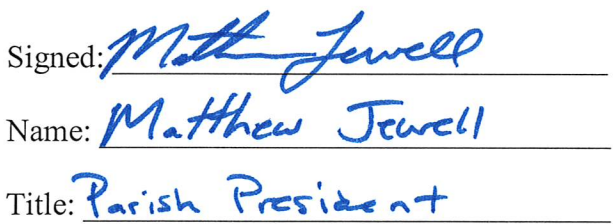 Signed: Matthew Jewell
Name: Matthew Jewell
Title: Parish President